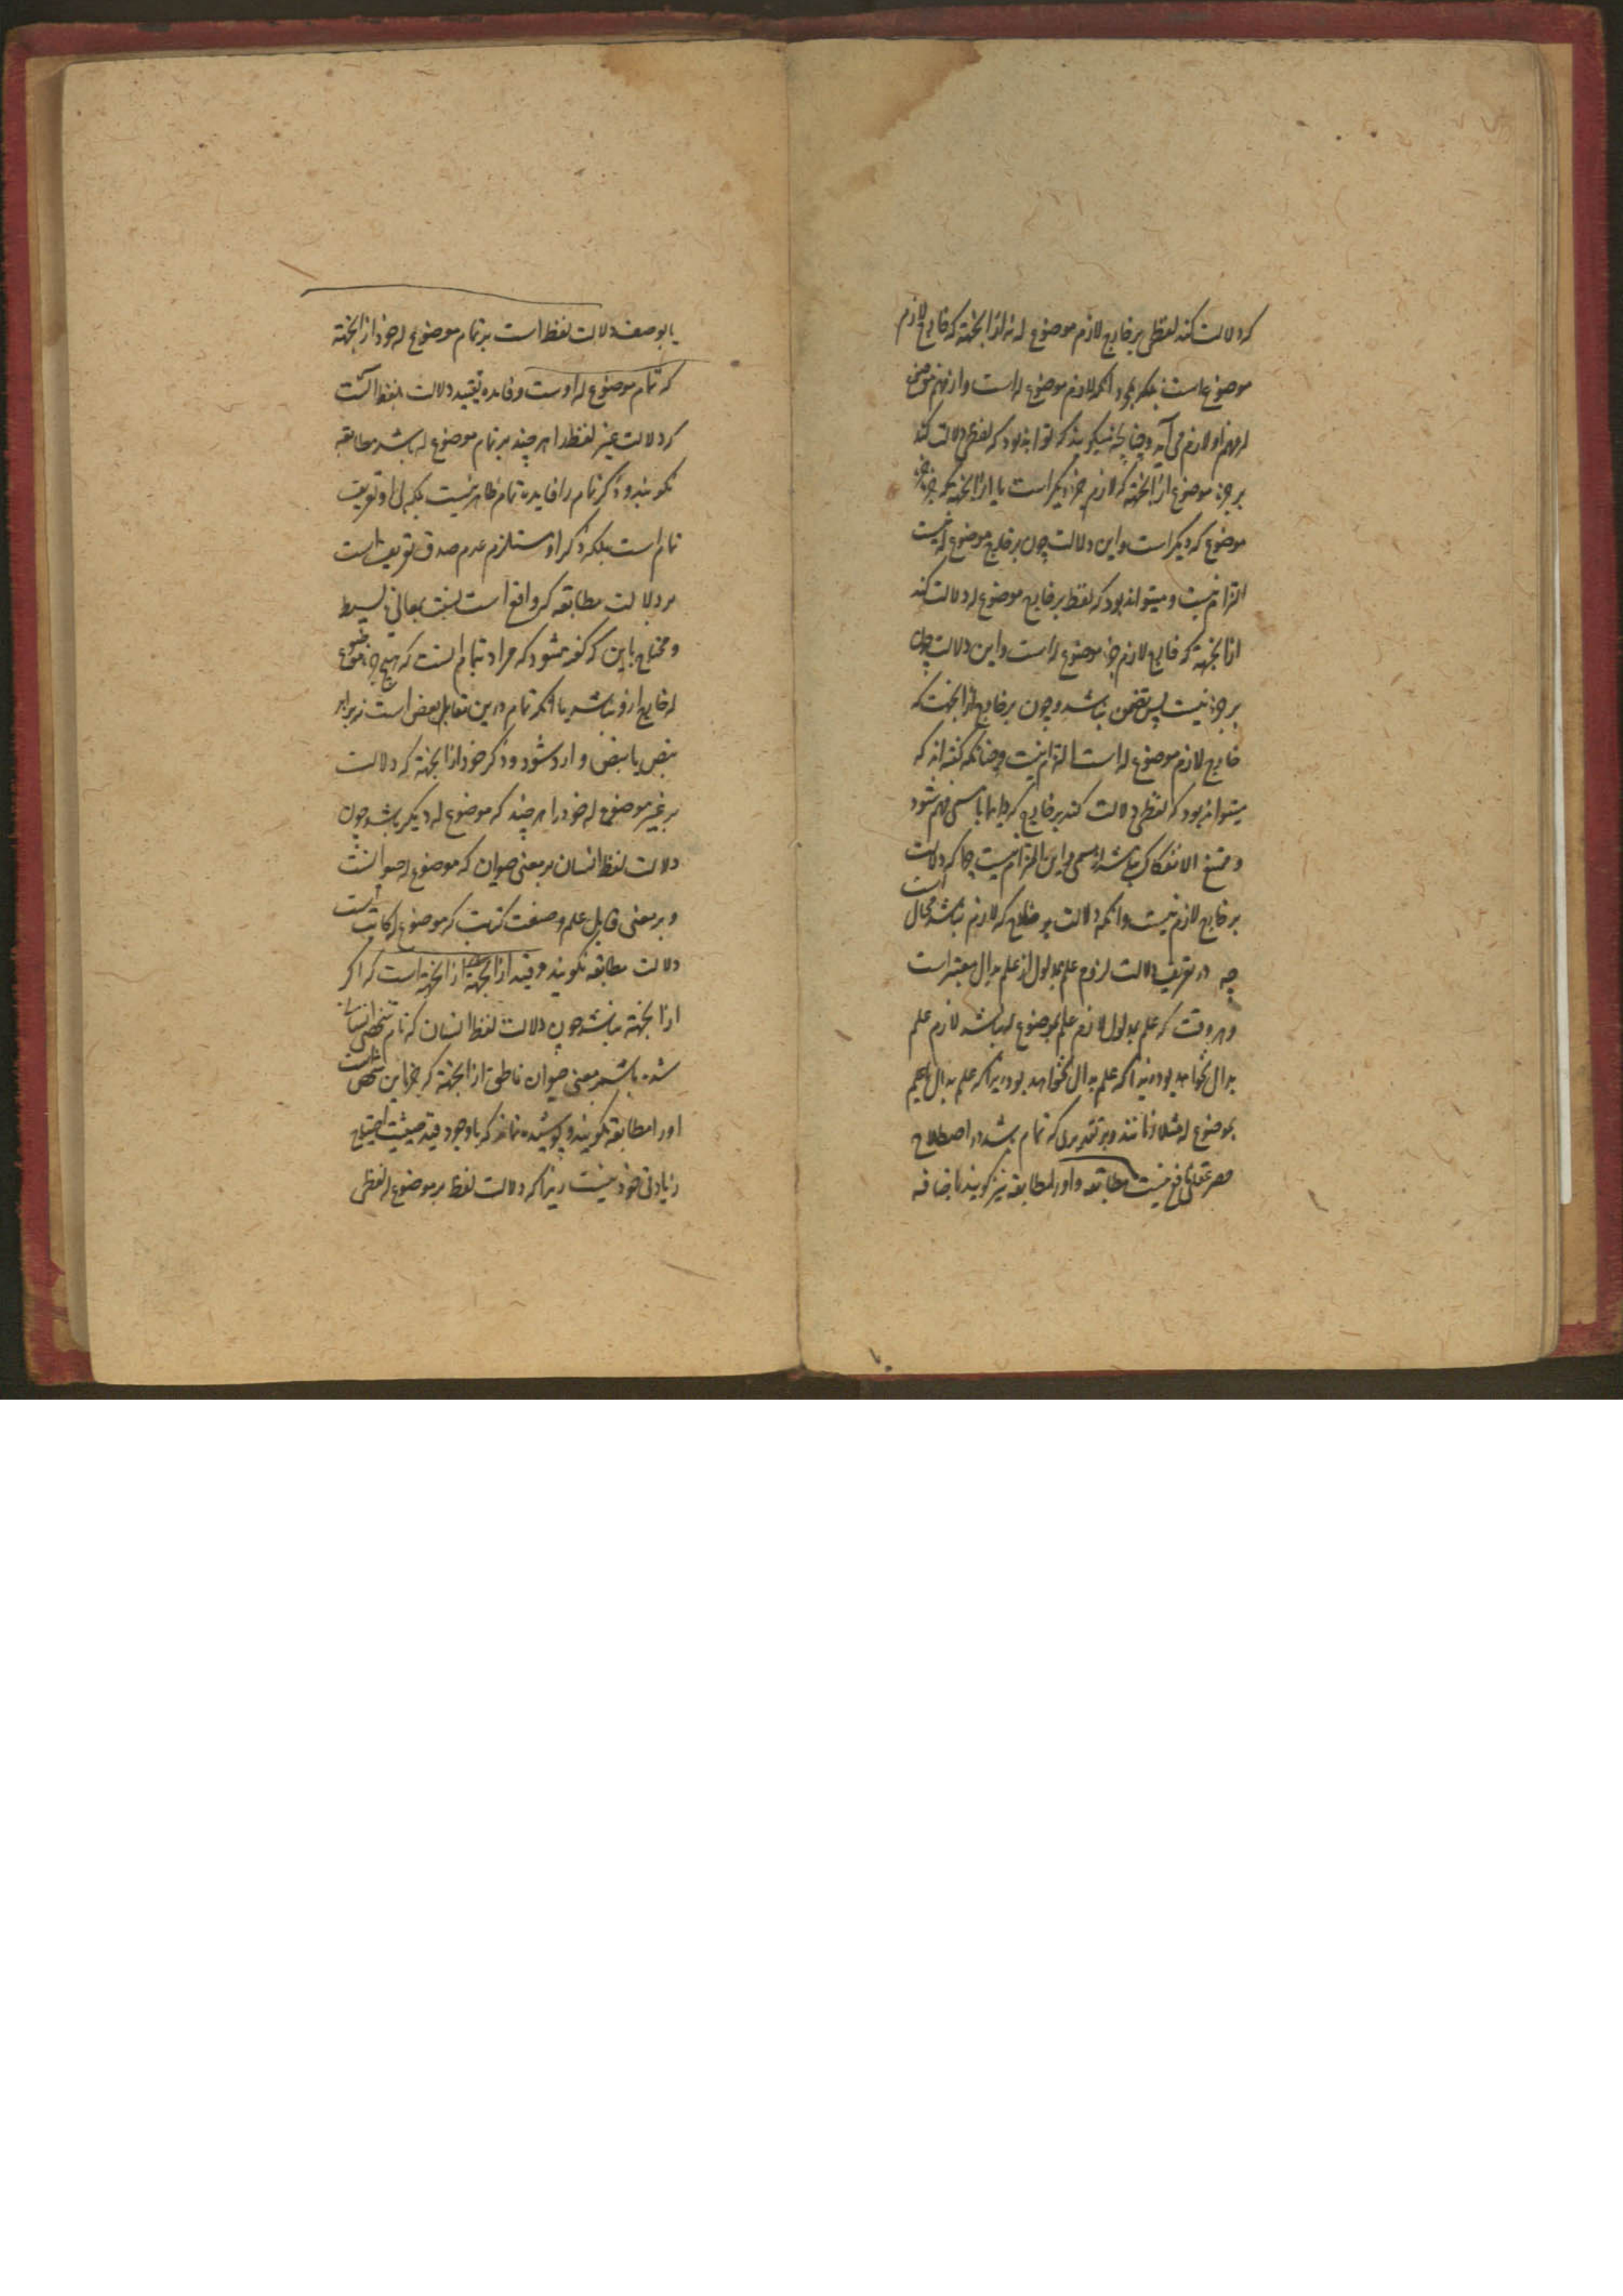 که دلالت کند لفظی بر خارج لازم موضوع له نه از آنجهة که خارج لازم
موضوع است بلکه بمجرد آنکه لازم موضوع له است و از فهم موضوع
له فهم او لازم می آید و چنانچه میگویند که تواند بود که لفظی دلالت کند
بر جزء موضوع از آنجهة که لازم جزء دیگر است یا از آنجهة که جزء
موضوع که دیگر است و این دلالت چون بر خارج موضوع له نیست
التزام نیست و میتواند بود که لفظ بر خارج موضوع له دلالت کند
از آنجهة که خارج لازم جزء موضوع له است و این دلالت چون
بر جزء نیست پس تضمن نباشد و چون بر خارج از آنجهت که
خارج لازم موضوع له است التزام نیست و چنانکه گفته اند که
میتواند بود که لفظی دلالت کند بر خارج که با مسمی فهم شود
و ممتنع الانفکاک نباشد از مسمی و این التزام نیست چرا که دلالت
بر خارج لازم نیست و آنکه دلالت بر خارج که لازم نباشد محال است
چه در تعریف دلالت لزوم علم بمدلول از علم بدال معتبر است
و هر وقت که علم بمدلول لازم علم بموضوع له نباشد لازم علم
بدال نخواهد بود زیرا که علم بدال نخواهد بود زیرا که علم بدال
بموضوع له مثلا و بر تقدیری که تمام باشد در اصطلاح
حصر عقلی نافع نیست مطابقه و او را مطابقه نیز گویند باضافه
یا بوصف دلالت لفظ است بر تمام موضوع له خود از آنجهة
که تمام موضوع له اوست و فایده تقیید دلالت بلفظ آنست
که دلالت غیر لفظ را هر چند بر تمام موضوع له باشد مطابقه
نگویند و ذکر تمام را فایده تمام ظاهر نیست بلکه بی او تعریف
تام است بلکه ذکر او مستلزم عدم صدق تعریف است
بر دلالت مطابقه که واقع است بنسبت بمعانی بسیط
و محتاج باین که گفته شود که مراد بتمام آنست که هیچ جزء موضوع
له خارج ازو نباشد یا آنکه تمام درین مقابل بعض است نه برابر
بعض یا بعض وارد شود و ذکر خود از آنجهة که دلالت
بر غیر موضوع له خود را هر چند که موضوع له دیگر باشد چون
دلالت لفظ انسان بر معنی حیوان که موضوع له حیوانست
و بر معنی قابل علم و صنعت کتابت که موضوع له کاتب است
دلالت مطابقه نگویند و قید از آنجهة از آنجهة است که اگر
از آنجهة نباشد چون دلالت لفظ انسان که نام شخص انسان
شده باشد بر معنی حیوان ناطق از آنجهة که جزء این شخص است
او را مطابقه نگویند و پوشیده نماند که با وجود قید حیثیت احتیاج
زیادتی خود نیست زیرا که دلالت لفظ بر موضوع له لفظی